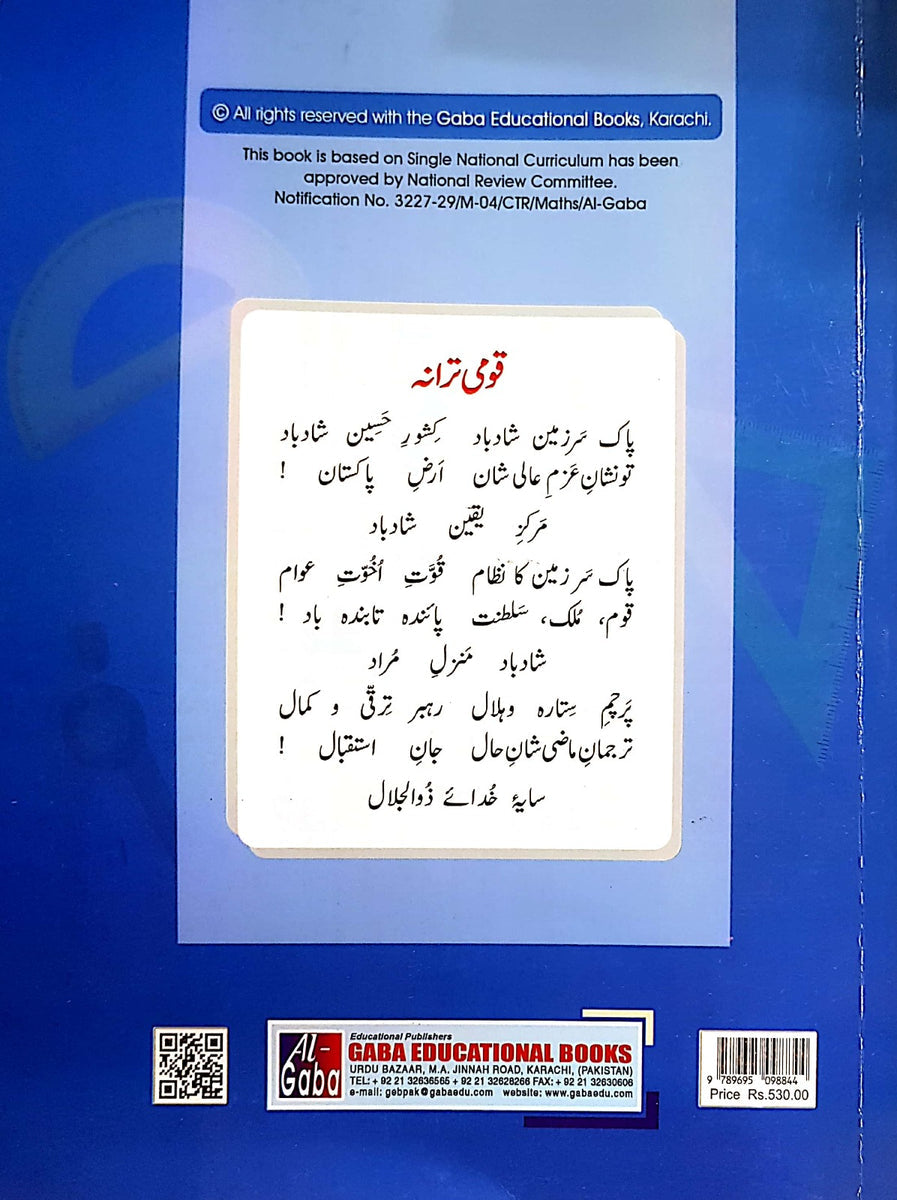 © All rights reserved with the Gaba Educational Books, Karachi.
This book is based on Single National Curriculum has been
approved by National Review Committee.
Notification No. 3227-29/M-04/CTR/Maths/Al-Gaba
قومی ترانہ
پاک سَرزمین شادباد کِشورِ حَسِین شادباد
تو نشانِ عَزمِ عالی شان اَرضِ پاکستان !
مَرکزِ یقین شادباد
پاک سَرزمین کا نظام قُوَّتِ اُخُوّتِ عوام
قوم، مُلک، سَلطنت پائندہ تابندہ باد !
شادباد مَنزلِ مُراد
پَرچمِ سِتارہ و ہلال رہبرِ تِرقّی و کمال
ترجمانِ ماضی شانِ حال جانِ استقبال !
سایۂ خُدائے ذُوالجلال
Al-
Gaba
Educational Publishers
GABA EDUCATIONAL BOOKS
URDU BAZAAR, M.A. JINNAH ROAD, KARACHI, (PAKISTAN)
TEL: + 92 21 32636565 + 92 21 32628266 FAX: + 92 21 32630606
e-mail: gebpak@gabaedu.com website: www.gabaedu.com
9 789695 098844
Price Rs.530.00